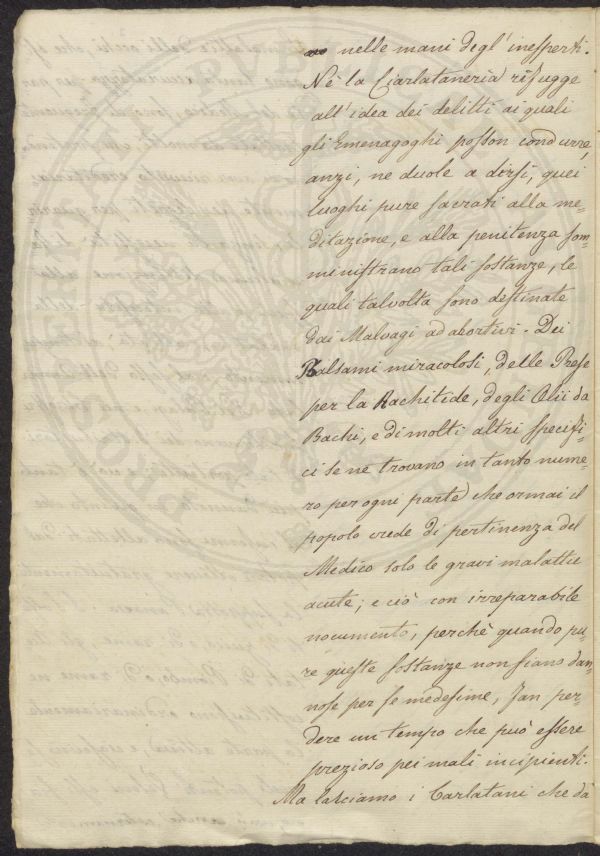 nelle mani degl' inesperti.
Nè la Ciarlataneria rifugge
all' idea dei delitti ai quali
gli Emenagoghi posson condurre,
anzi, ne duole a dirsi, quei
luoghi pure sacrati alla me-
ditazione, e alla penitenza som-
ministrano tali sostanze, le
quali talvolta sono destinate
dai Malvagi ad abortivi. Dei
Balsami miracolosi, delle Prese
per la Rachitide, degli Olii da
Bachi, e di molti altri specifi-
ci se ne trovano in tanto nume-
ro per ogni parte che ormai il
popolo crede di pertinenza del
Medico solo le gravi malattie
acute; e ciò con irreparabile
nocumento, perchè quando pu-
re queste sostanze non siano dan-
nose per se medesime, fan per-
dere un tempo che può essere
prezioso pei mali incipienti.
Ma lasciamo i Carlatani che da